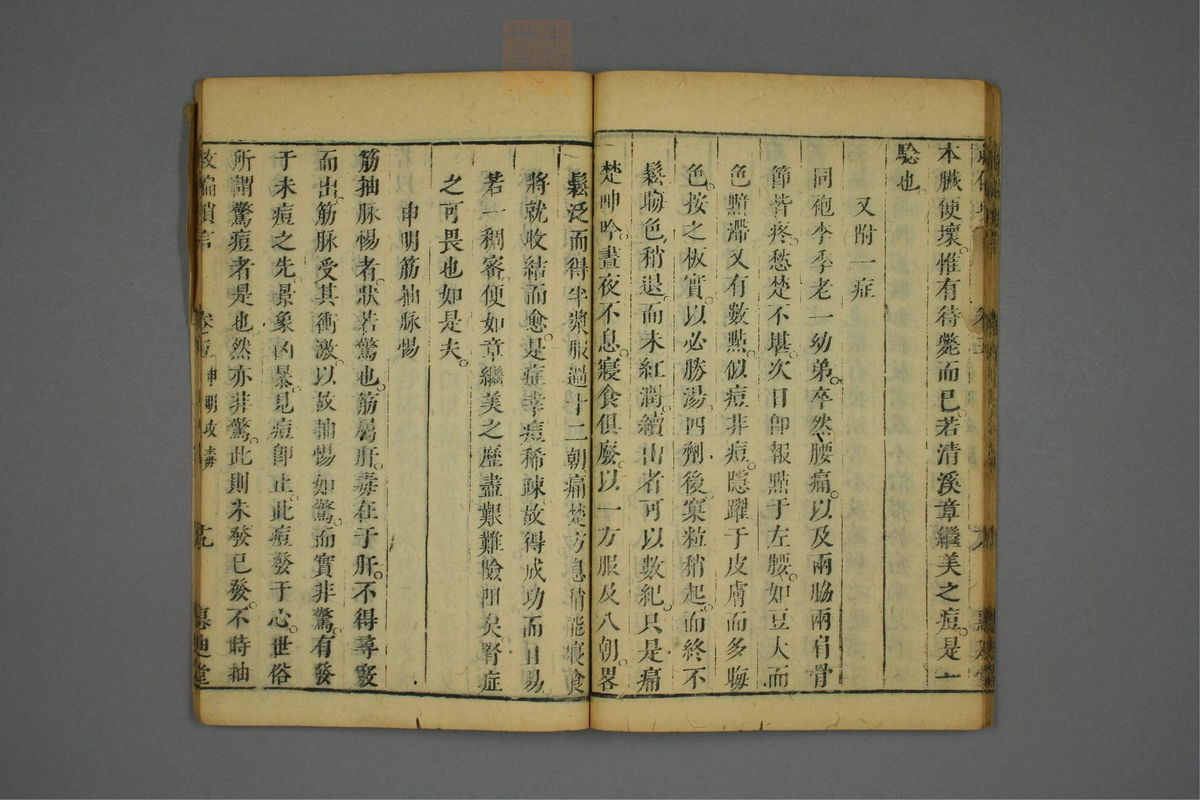 本臟便壞惟有待斃而已若清溪章繼美之痘是一
騐也
又附一症
同砲李季老一幼弟卒然腰痛以及兩脇兩肩骨
節皆疼愁楚不堪次日卽報點于左腰如豆大而
色黯滯又有數點似痘非痘隱躍于皮膚而多晦
色按之板實以必勝湯四劑後窠粒稍起而終不
鬆塲色稍退而未紅潤續出者可以數紀只是痛
楚呻吟晝夜不息寢食俱廢以一方服及八朝畧
鬆泛而得半漿服過十二朝痛楚方息稍能寢食
將就收結而愈是症幸痘稀疎故得成功而目易
若一稠密便如章繼美之歷盡艱難險阻矣腎症
之可畏也如是夫
申明筋抽脉惕
筋抽脉惕者狀若驚也筋屬肝毒在于肝不得尋竅
而出筋脉受其衝激以故抽惕如驚而實非驚有發
于未痘之先景象凶暴見痘卽止此痘發于心世俗
所謂驚痘者是也然亦非驚此則未發已發不時抽
救偏瑣言 卷五 申明攻毒 十九 惠迪堂